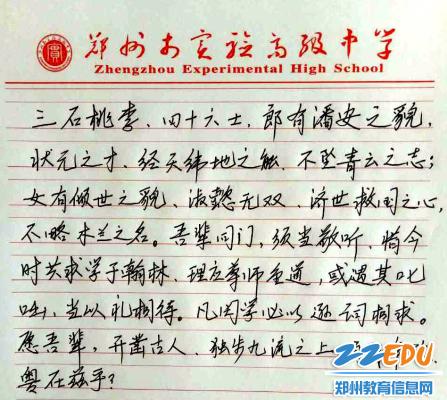 郑州市实验高级中学
Zhengzhou Experimental High School
三石桃李、四十六士，郎有潘安之貌，
状元之才、经天纬地之能、不坠青云之志；
女有倾世之貌、淑懿无双、济世救国之心，
不略木兰之名。吾辈同门，须当敬听、惜今
时共求学于翰林、理应尊师重道，或遇其叱
咄，当以礼相待。凡同学必以逊词相求。
愿吾辈，开凿古人、独步九流之上
粤在兹乎？
ZZEDU
郑州教育信息网